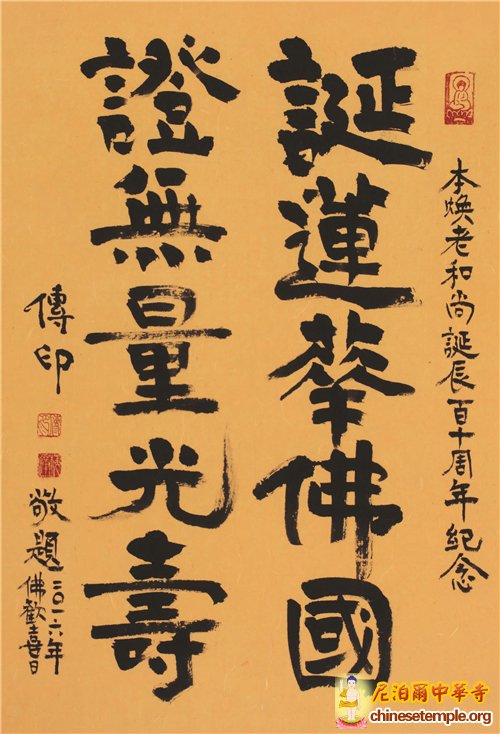 本焕老和尚誕辰百十周年纪念
誕蓮華佛國
證無量光壽
傳印
敬題
二〇一六年
佛歡喜日
尼泊爾中華寺
chinesetemple.org